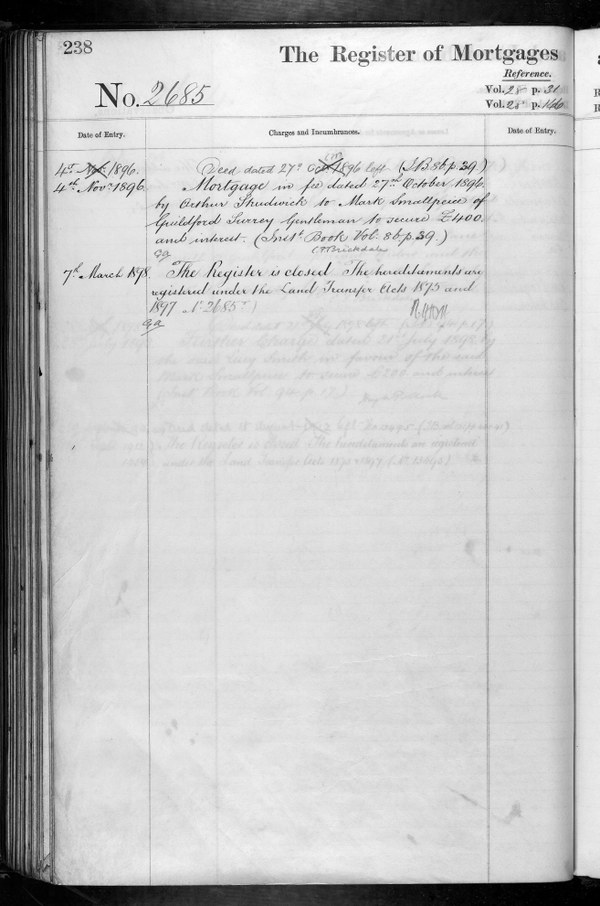 238
The Register of Mortgages
Reference.
No. 2685
Vol. 28 p. 31
Vol. 28 p. 146
Date of Entry.
Charges and Incumbrances.
Date of Entry.
4th Nov. 1896. Deed dated 27th Oct 1896 left (I.B. 86 p. 39.)
4th Nov. 1896. Mortgage in fee dated 27th October 1896
by Arthur Strudwick to Mark Smallpiece of
Guildford Surrey Gentleman to secure £400
and interest. (Inst. Book Vol. 86 p. 39.)
7th March 1898. The Register is closed The hereditaments are
registered under the Land Transfer Acts 1875 and
1897 No. 2685